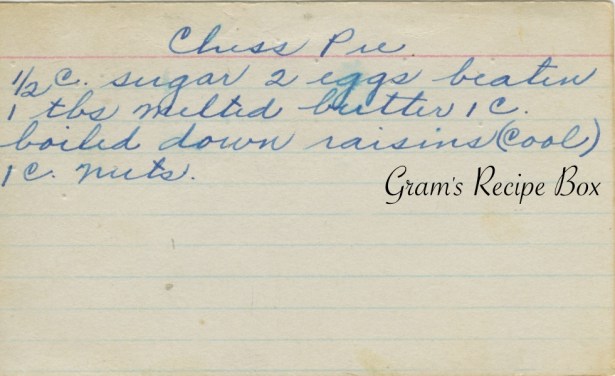 Chess Pie
1/2 c. sugar 2 eggs beaten
1 tbs melted butter 1 c.
boiled down raisins (cool)
1 c. nuts.
Gram's Recipe Box